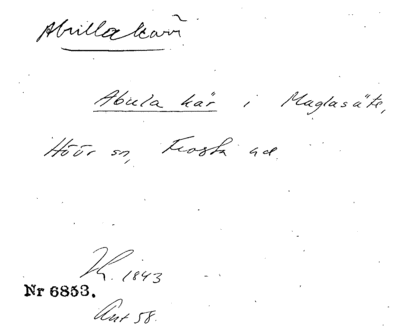 Abullakärr
Abula kär i Maglasäte,
Höör sn, Frosta hd
1843
Nr 6853.
Ant 58.